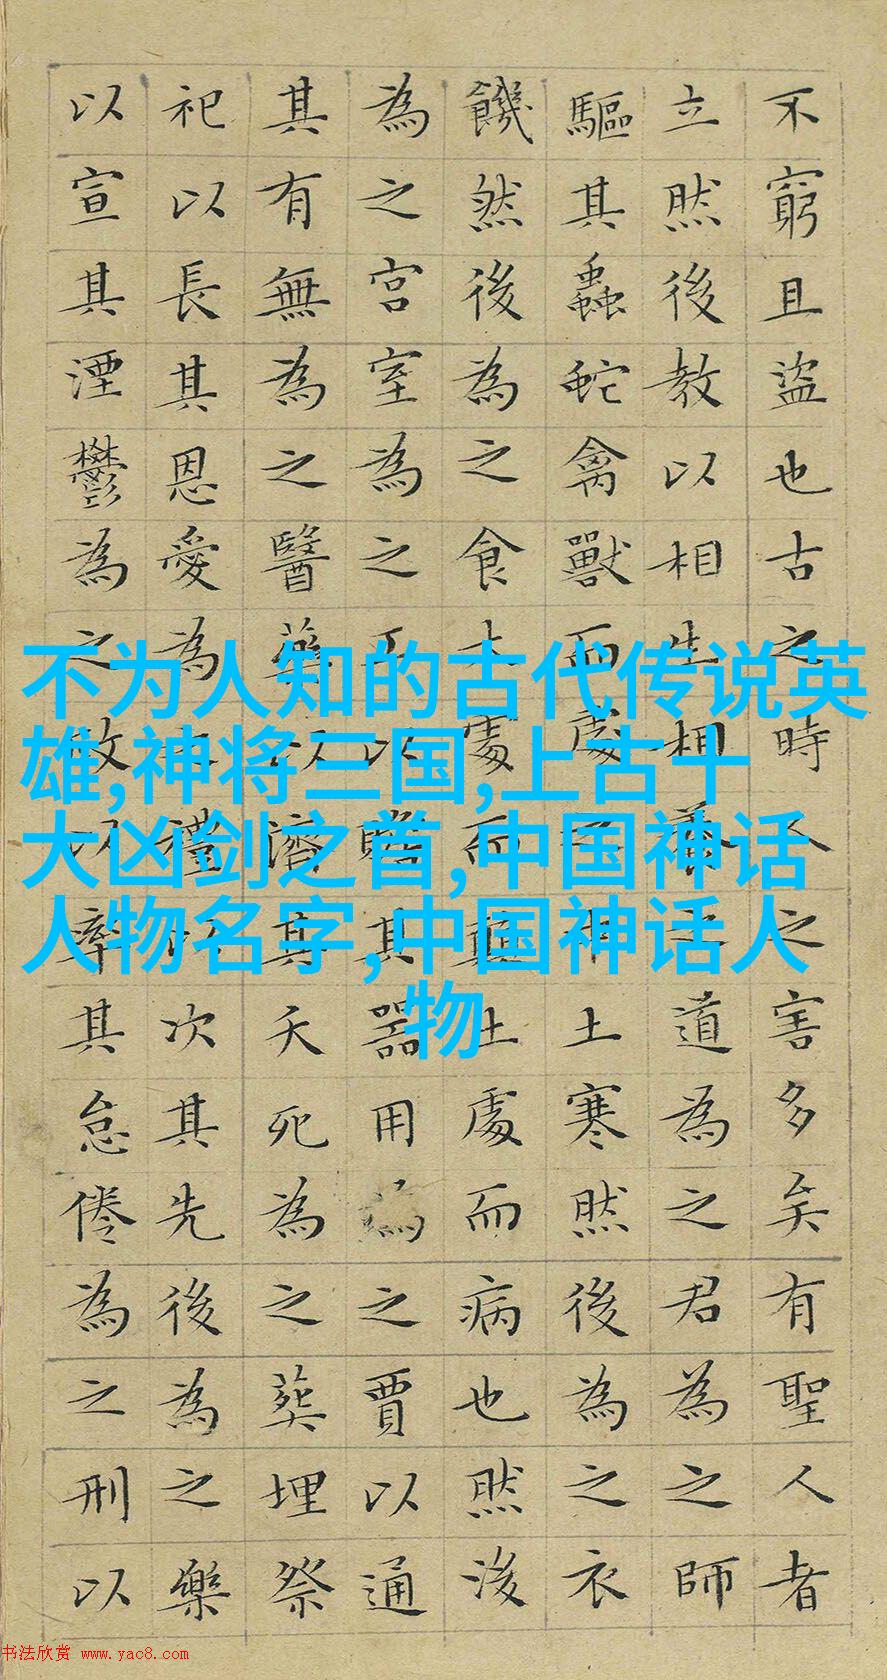 不窮且盜也古之時人之害多矣有聖人者
立然後教以相生相養之道為之君為之師
驅其蟲蛇禽獸而處之中土寒然後為之衣
饑然後為之食木處而顛土處而病也然後
為之宮室為之工以贍其器用為之賈以通
其有無為之醫藥以濟其夭死為之葬埋祭
祀以長其恩愛為之禮以次其先後為之樂
以宣其湮鬱為之政以率其怠倦為之刑以
不为人知的古代传说英
雄,神将三国,上古十
大凶剑之首,中国神话
人物名字,中国神话人
物
书法欣赏 www.yac8.com